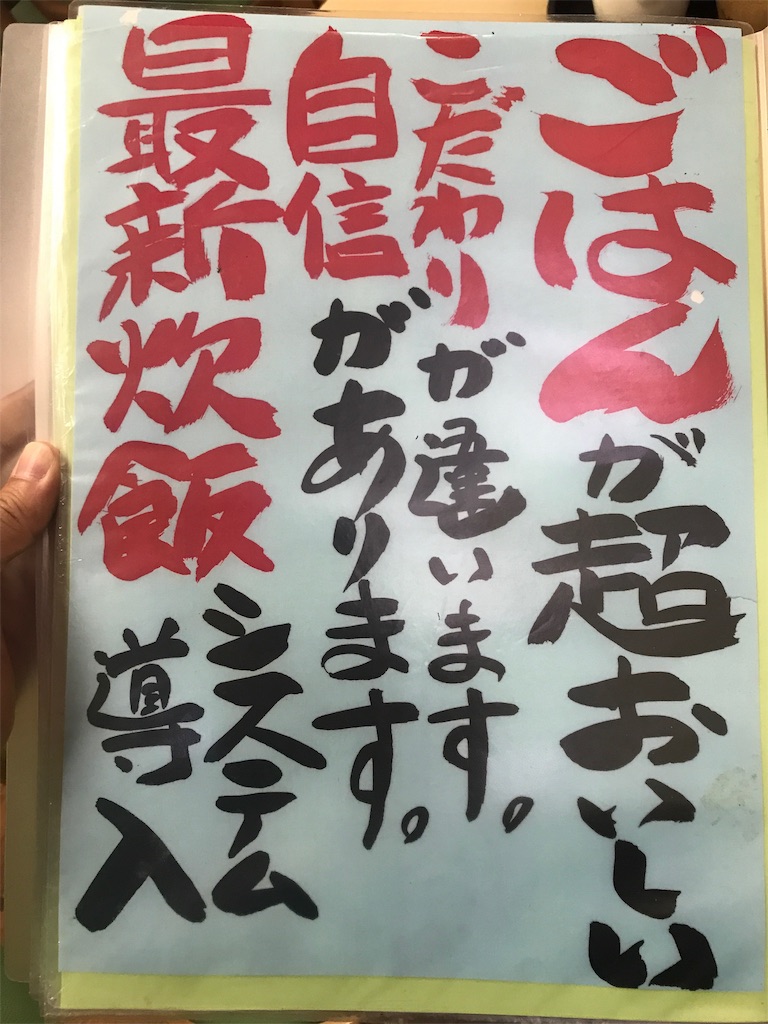 ごはんが超おいしい
こだわりが違います。
自信があります。
最新炊飯システム
導入